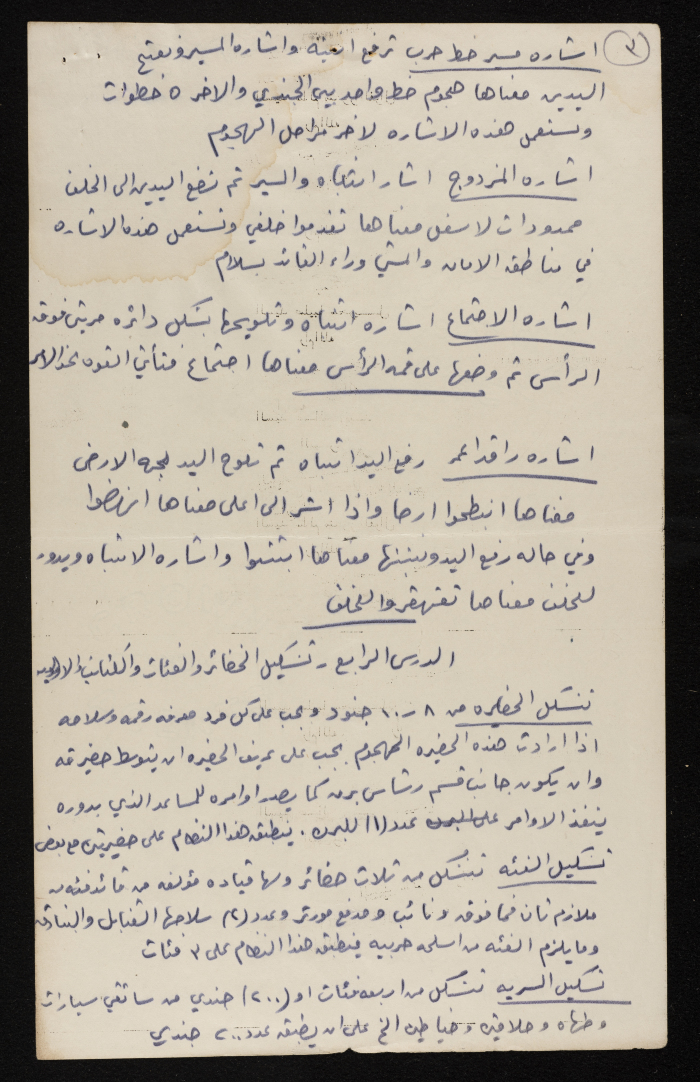 (٣) اشاره سير خط حرب ترفع اليد انتباه واشاره المسير وبفتح
اليدين معناها هجوم خط واحد بين الجندي والاخر ٥ خطوات
وتستعمل هذه الاشاره لاخر مراحل الهجوم
اشاره المزدوج اشاره انتباه والسير ثم تضع اليدين الى الخلف
ممدودات لاسفل معناها تقدموا خلفي وتستعمل هذه الاشاره
في مناطق الامان والمشي وراء القائد بسلام
اشاره الاجتماع اشاره انتباه وتلويحها بشكل دائره مرتين فوق
الرأس ثم وضعها على قمه الرأس معناها اجتماع فتأتي القوه
اشاره راقداً رفع اليد انتباه ثم تلوح اليد لجهه الارض
معناها انبطحوا ارضا واذا اشر الى اعلى معناها انهضوا
وفي حاله رفع اليد معناها واشاره الانتباه ويدور
للخلف معناها تقهقروا للخلف
الدرس الرابع - تشكيل الحضائر والفئات والكتائب
تتشكل الحضيره من ٨ - ١٠ جنود ويجب على كل فرد معرفه رقمه وسلاحه
اذا ارادت هذه الحضيره الهجوم يجب على عريف الحضيره ان يتوسط حضيرته
وان يكون جانب قسم رشاش برن كما يصدر اوامره للمساعد الذي بدوره
ينفذ الاوامر على عدد (١) للبرن . ينطبق هذا النظام على حضيرتين مع بعض
تشكيل الفئه تتشكل من ثلاث حضائر ولها قياده مؤلفه من قائد فئه من
ملازم ثان فما فوق ونائب ومدفع مورتر وعدد (٢) سلاحها القنابل والبنادق
وما يلزم الفئه من اسلحه حربيه فينطبق هذا النظام على ٣ فئات
تشكيل السريه تتشكل من اربعه فئات او (٢٠٠) جندي من سائقي سيارات
وطهاه وحلاقين وخياطين الخ على ان يطبق عدد ٢٠٠ جندي